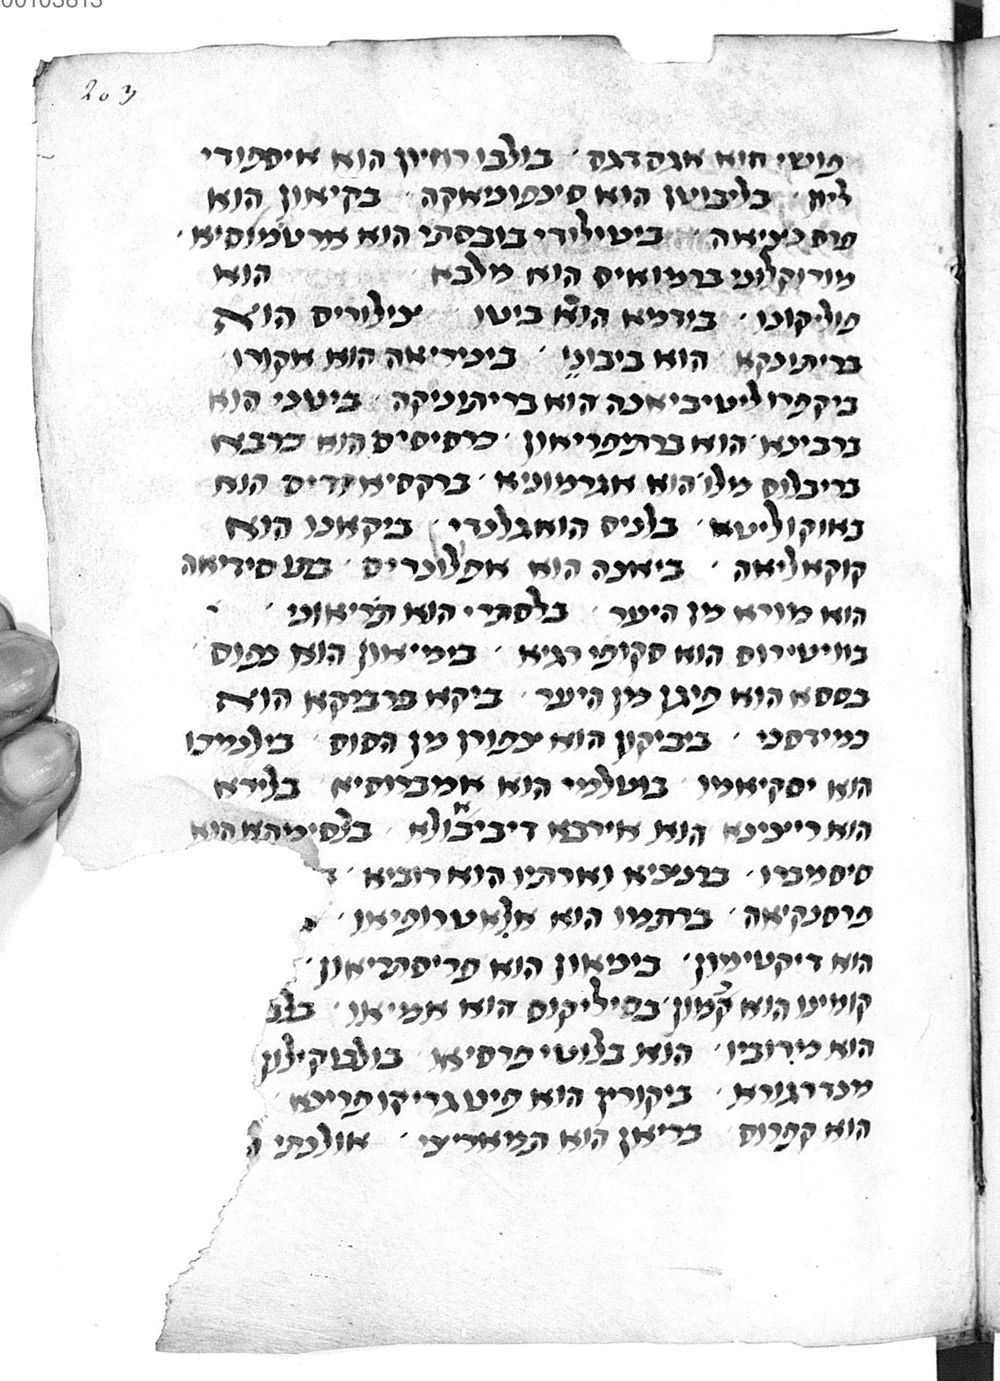 00103813
203
פושי הוא אגסדגס בולבו רחיון הוא איספודי
ליח בליבוטן הוא סינפוניאקה בקיאון הוא
פרסנציאה ביטילודי בובסתי הוא ארטמוסיא
מורוקלוני ברמואיס הוא מלבא הוא
פוליקונו בידמא הוא ביטו צילוריס הוא
בריתונקא הוא ביבוני ביניריאה הוא אקורו
ביקפרוליטיביאנה הוא בריתוניקה ביטני הוא
ברבינא הוא ברתפריאון פרסיסיס הוא פרבא
בריבלוס מלו הוא אגרמוניא ברקסיאידיס הוא
באוקוליטא בלניס הוא גלנדי ביקאנו הוא
קוקאליאה ביאנה הוא אפלונריס סידיאה
הוא מורא מן היער בלסתרי הוא תריאוני
בוויטירוס הוא סקופי רגיא בימיאון הוא נפוס
בססא הוא פיגן מן היער ביקא פרביקא הוא
כמידסני ביביקון הוא צפורן מן הסוס בילנמיפו
הוא יסקיאמו בוטלמי הוא אמברוסיא בלירא
הוא ריצינא הוא אירבא דיביבולא בלסימהא הוא
סיסמברו ברנציא ואורתיו הוא רוביא
פרסנקיאה ברתמו הוא אלאטרופיאו
הוא דיקטימון בינאון הוא פריסתריאון
קומינו הוא קמון בסיליקוס הוא אמיאו
הוא מרוביו הוא בלוטי פרסיא בולבוקילון
מנדרגורא ביקורין הוא פיטגריקו פרינא
הוא קפרוס בריאן הוא המאריצי אולנתי